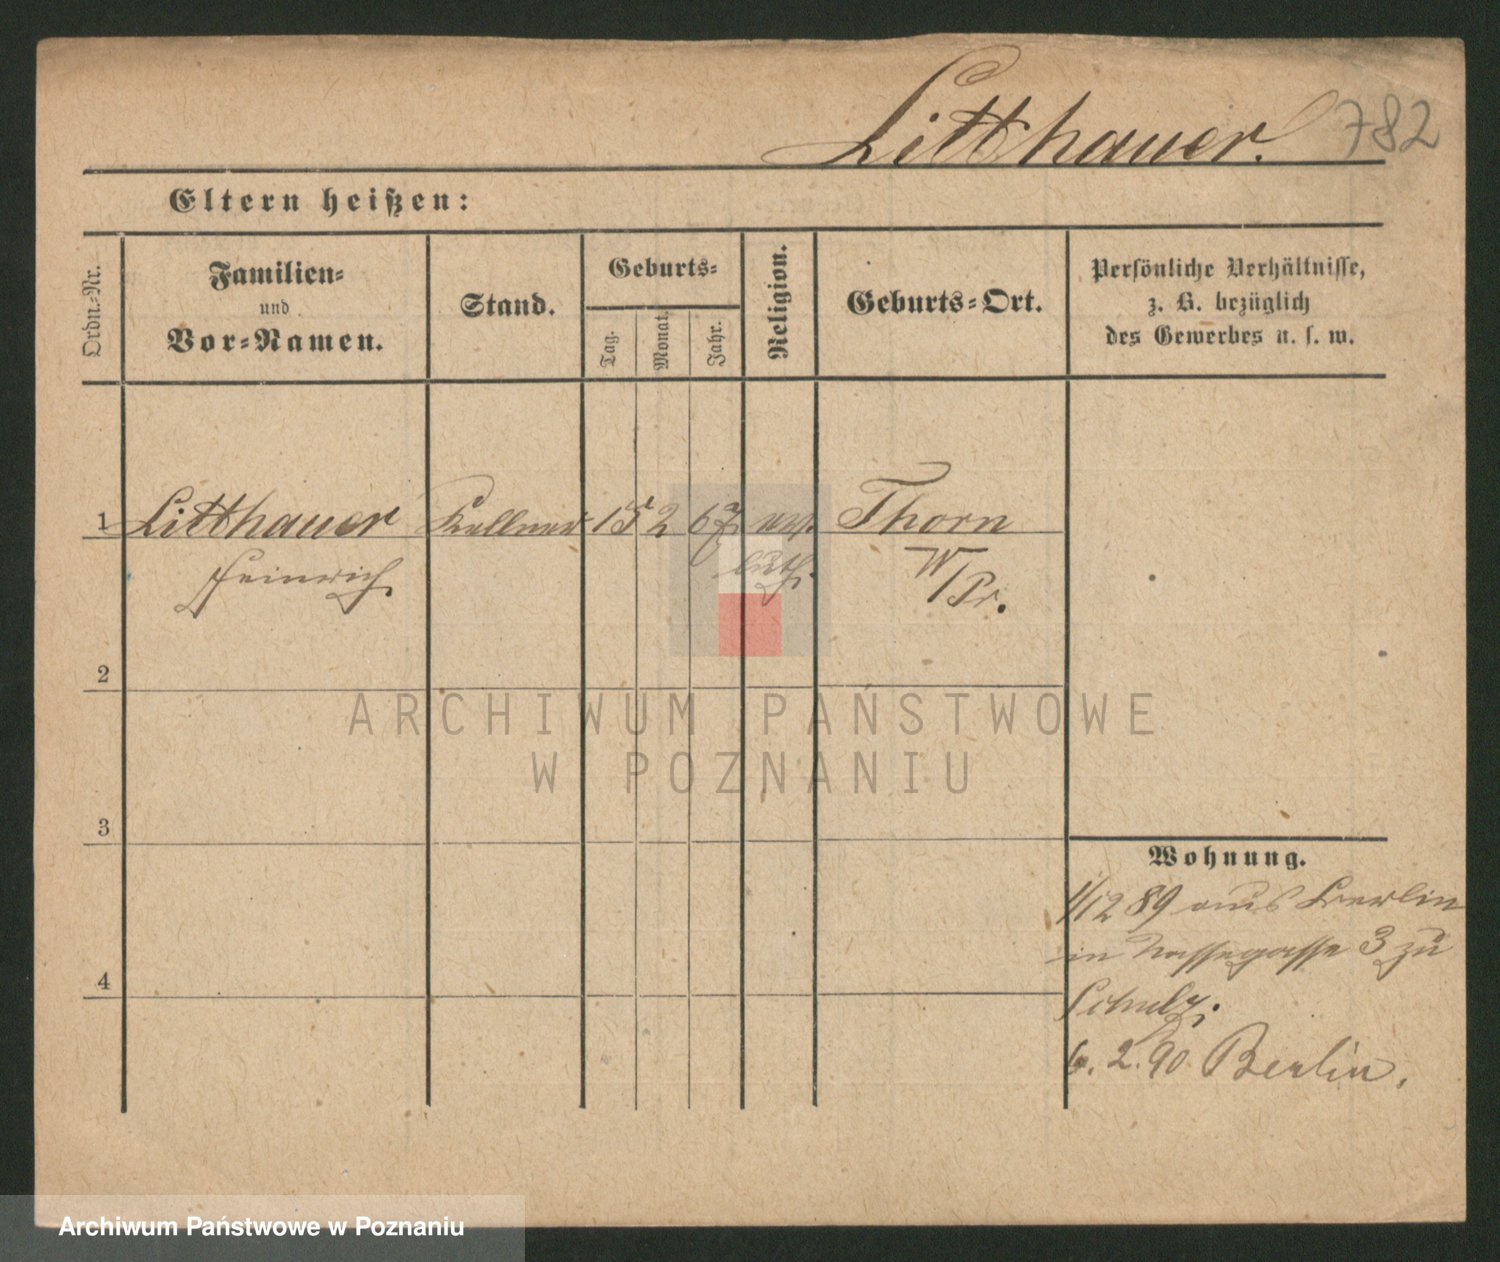 Litthauer. 782
Eltern heißen:
Ordn.-Nr.
Familien-
und
Vor-Namen.
Stand.
Geburts-
Tag.
Monat.
Jahr.
Religion.
Geburts-Ort.
Persönliche Verhältnisse,
z. B. bezüglich
des Gewerbes u. s. w.
1 Litthauer Kellner 15 2 67 ev. Thorn
Heinrich luth. W/Pr.
2
3
4
Wohnung.
1/12 89 aus Berlin
in Nassegasse 3 zu
Schulz.
6. 2. 90 Berlin.
ARCHIWUM PAŃSTWOWE
W POZNANIU
Archiwum Państwowe w Poznaniu